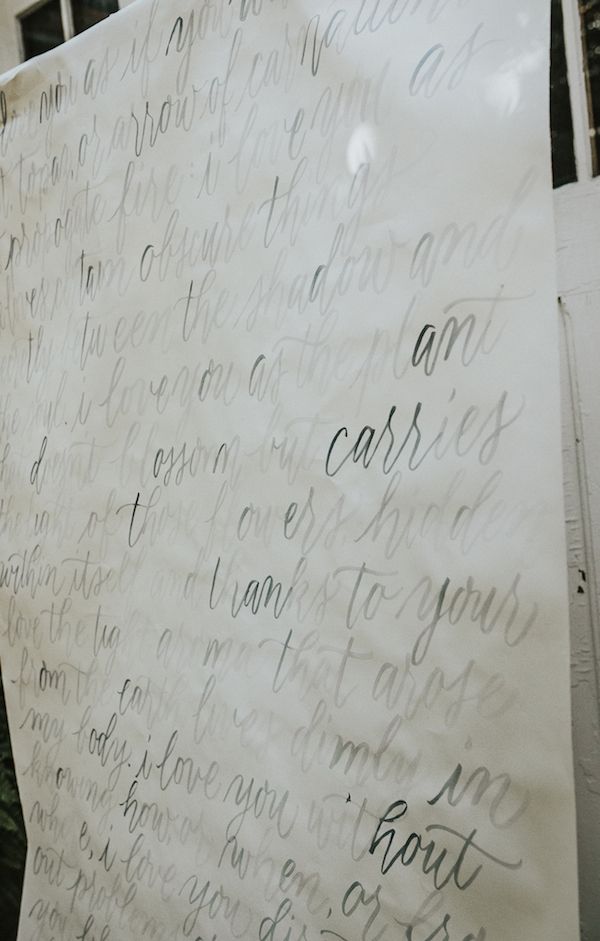 love you as if you
t, topaz, or arrow of carnations
t propagate fire: i love you as
certain obscure things
between the shadow and
the soul. i love you as the plant
that doesn't blossom but carries
the light of those flowers, hidden
within itself and thanks to your
love the tight aroma that arose
from the earth lives dimly in
my body. i love you without
knowing how or when, or fro
where, i love you
out problem
you